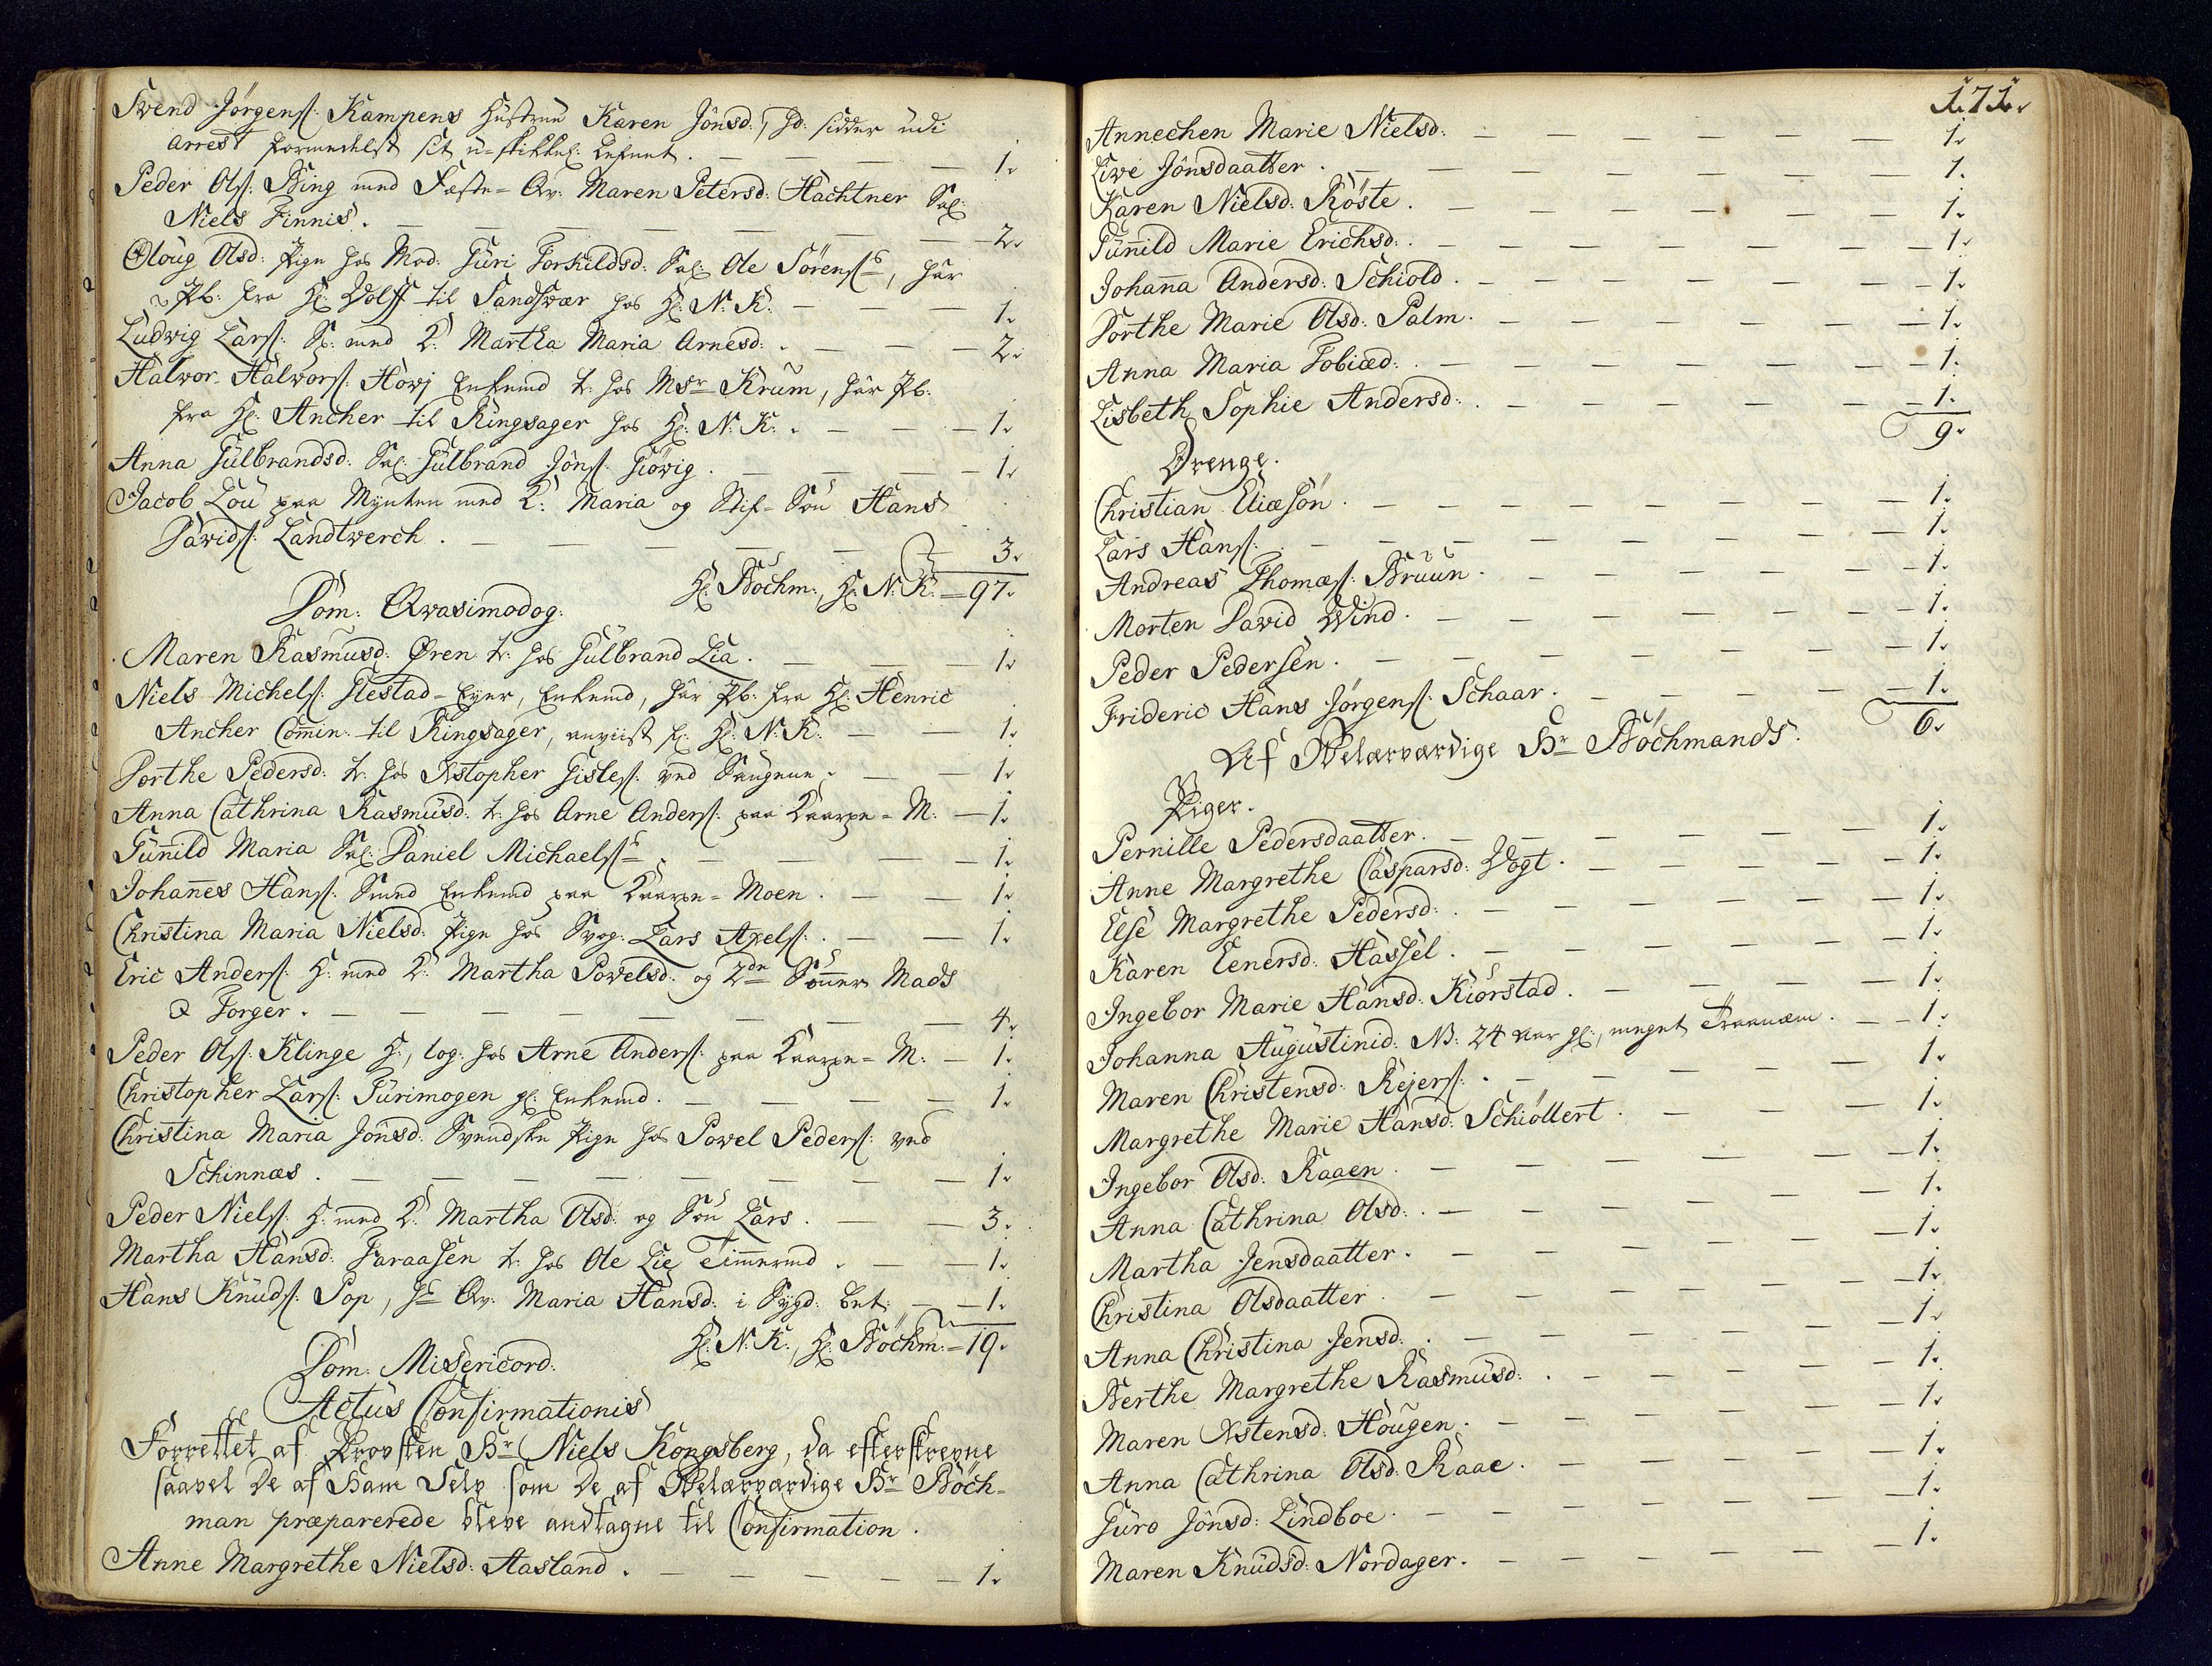 Svend Jörgens: Kampens Hustrue Karen Jönsd:, sidder udi
arrest formedelst sit u-skikkel: Lefnet. — 1.
Peder Ols: Bing med Fæste-Qv: Maren Petersd: Hachtner Sal:
Niels Finnis. — 2.
Oloug Olsd: Pige hos Mad. Guri Torkildsd: Sal: Ole Sörens:, har
Pb: fra Hr: Wolff til Sandsvær hos Hr: N: K: — 1.
Ludwig Lars: S: med K: Martha Maria Arnesd: — 2.
Halvor Halvors: Hovj Enkemd t: hos Msr Krum, har Pb:
fra Hr: Ancher til Ringsager hos Hr: N: K: — 1.
Anna Gulbrandsd: Sal: Gulbrand Jöns: Giövig. — 1.
Jacob Lou paa Mynten med K: Maria og Stif-Sön Hans
Davids: Landtverch. — 3.
Hr: Bochm:, Hr: N: K: = 97.
Dom: Qvasimodog:
Maren Rasmusd: Øren t: hos Gulbrand Lia. — 1.
Niels Michels: Flestad-Eyer, Enkemd, har Pb: fra Hr: Henric
Ancher Com̄in: til Ringsager, anviist fr: Hr: N: K: — 1.
Dorthe Pedersd: t: hos Xstopher Gisles: ved Saugene. — 1.
Anna Cathrina Rasmusd: t: hos Arne Anders: paa Kaarpe-M: — 1.
Gun̄ild Maria Sal: Daniel Michaels: — 1.
Johan̄es Hans: Smed Enkemd paa Kaarpe-Moen. — 1.
Christina Maria Nielsd: Pige hos Svog: Lars Axels: — 1.
Eric Anders: G: med K: Martha Povelsd: og 2de Sön̄er Mads
& Torger. — 4.
Peder Ols: Klinge G:, log: hos Arne Anders: paa Kaarpe-M: — 1.
Christopher Lars: Turimogen gl: Enkemd. — 1.
Christina Maria Jonsd: Svendske Pige hos Povel Peders: ved
Schinnæs. — 1.
Peder Niels: G: med K: Martha Olsd: og Sön Lars. — 3.
Martha Hansd: Faraasen t: hos Ole Lie Tim̄ermd. — 1.
Hans Knuds: Pop, Qv: Maria Hansd: i Sygd: bet: — 1.
Hr: N: K:, Hr: Böchm: = 19.
Dom: Misericord:
Actus Confirmationis
Forrettet af Provsten Hr Niels Kongsberg, da efterskrevne
saavel De af Ham Selv som De af Velærværdige Hr Böch-
man præparerede bleve andtagne til Confirmation.
Anne Margrethe Nielsd: Aasland. — 1.
171.
Annechen Marie Nielsd: — 1.
Live Jönsdaatter. — 1.
Karen Nielsd: Röste. — 1.
Gun̄ild Marie Erichsd: — 1.
Johan̄a Andersd: Schiold. — 1.
Dorthe Marie Olsd: Palm. — 1.
Anna Maria Tobiæd: — 1.
Lisbeth Sophie Andersd: — 1.
9.
Drenge.
Christian Eliæsön. — 1.
Lars Hans: — 1.
Andreas Thomæs: Bruun. — 1.
Morten David Wind. — 1.
Peder Pedersen. — 1.
Frideric Hans Jörgens: Schaar. — 1.
6.
Af Velærværdige Hr Böchmands.
Piger.
Pernille Pedersdaatter. — 1.
Anne Margrethe Caspersd: Vogt. — 1.
Else Margrethe Pedersd: — 1.
Karen Eenersd: Hassel. — 1.
Ingebor Marie Hansd: Kiörstad. — 1.
Johanna Augustinid: N: 24 aar gl:, meget Traanæm. — 1.
Maren Christensd: Rejers: — 1.
Margrethe Marie Hansd: Schiöllert. — 1.
Ingebor Olsd: Raaen. — 1.
Anna Cathrina Olsd: — 1.
Martha Jensdaatter. — 1.
Christina Olsdaatter. — 1.
Anna Christina Jensd: — 1.
Berthe Margrethe Rasmusd: — 1.
Maren Xstensd: Hougen. — 1.
Anna Cathrina Olsd: Raae. — 1.
Guro Jönsd: Lindboe. — 1.
Maren Knudsd: Nordager. — 1.